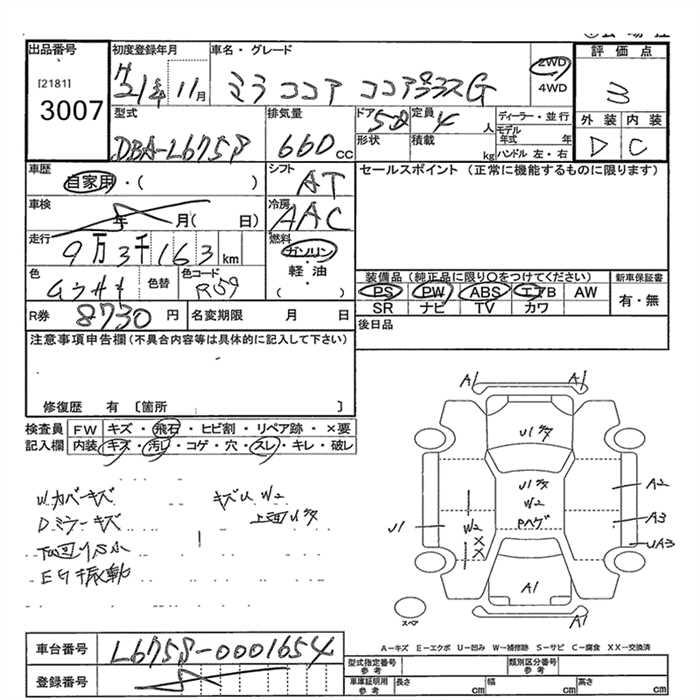 出品番号
[2181]
3007
初度登録年月
21年 11月
車名・グレード
ミラ ココア ココアプラスG
2WD
4WD
評価点
3
外装 内装
D C
型式
DBA-L675S
排気量
660cc
ドア
5
定員
4人
形状
積載
kg
ディーラー・並行
モデル年式 年
ハンドル 左・右
車歴
自家用・( )
シフト
AT
セールスポイント (正常に機能するものに限ります)
車検
年 月( 日)
冷房
AAC
走行
9万3千163km
燃料
ガソリン
軽・油
( ・ )
色
色替
色コード
R59
装備品(純正品に限り〇をつけてください)
PS PW ABS エアB AW
SR ナビ TV カワ
新車保証書
有・無
R券
8730円
名変期限 月 日
後日品
注意事項申告欄(不具合内容等は具体的に記入して下さい)
修復歴 有 〔箇所 〕
検査員記入欄
FW キズ・飛石・ヒビ割・リペア跡・×要
内装 キズ・汚レ・コゲ・穴・スレ・キレ・破レ
Wカバーキズ
Dミラーキズ
下回りサビ
EG振動
キズU W2
A1 A1
U1
U1
W2
Pハゲ
A2
A3
UA3
U1
W2
XX
A1
A1
スペア
A-キズ E-エクボ U-凹み W-補修跡 S-サビ C-腐食 XX-交換済
車台番号
L675S-0001654
登録番号
型式指定番号 参考
類別区分番号 参考
車庫証明用 参考
長さ cm
幅 cm
高さ cm